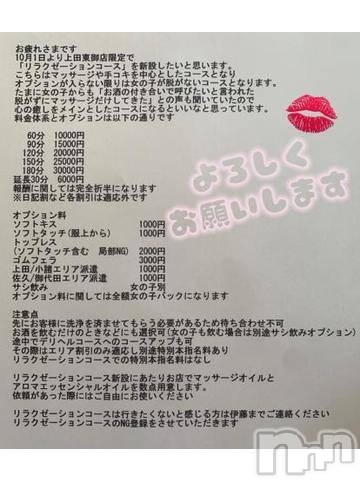 お疲れさまです
10月1日より上田東御店限定で
「リラクゼーションコース」を新設したいと思います。
こちらはマッサージや手コキを中心としたコースとなり
オプションが入らない限りは女の子が脱がないコースとなります。
たまに女の子からも「お酒の付き合いで呼びたいと言われた
脱がずにマッサージだけしてきた」との声も聞いていたので
心の癒しをメインとしたコースになるといいなと思っています。
料金体系とオプションは以下の通りです
60分 10000円
90分 15000円
120分 20000円
150分 25000円
180分 30000円
延長30分 6000円
報酬に関しては完全折半になります
※日記割など各割引は適応外です
よろしく
お願いします
オプション料
ソフトキス 1000円
ソフトタッチ(服上から) 1000円
トップレス
(ソフトタッチ含む 局部NG) 2000円
ゴムフェラ 3000円
上田/小諸エリア派遣 1000円
佐久/御代田エリア派遣 1000円
サシ飲み 女の子別
オプション料に関しては全額女の子バックになります
注意点
先にお客様に洗浄を済ませてもらう必要があるため待ち合わせ不可
お酒を飲むだけのときなどにも適応可(女の子も飲む場合は別途サシ飲みオプション)
途中でデリヘルコースへのコースアップも可
その際はエリア割引のみ適応し別途特別本指名料あり
リラクゼーションコースでの特別本指名料はなし
リラクゼーションコース新設にあたりお店でマッサージオイルと
アロマエッセンシャルオイルを数点用意します。
依頼があった際にはご自由にお使いください
リラクゼーションコースは行きたくないと感じる方は伊藤までご連絡ください
リラクゼーションコースのNG登録をさせていただきます